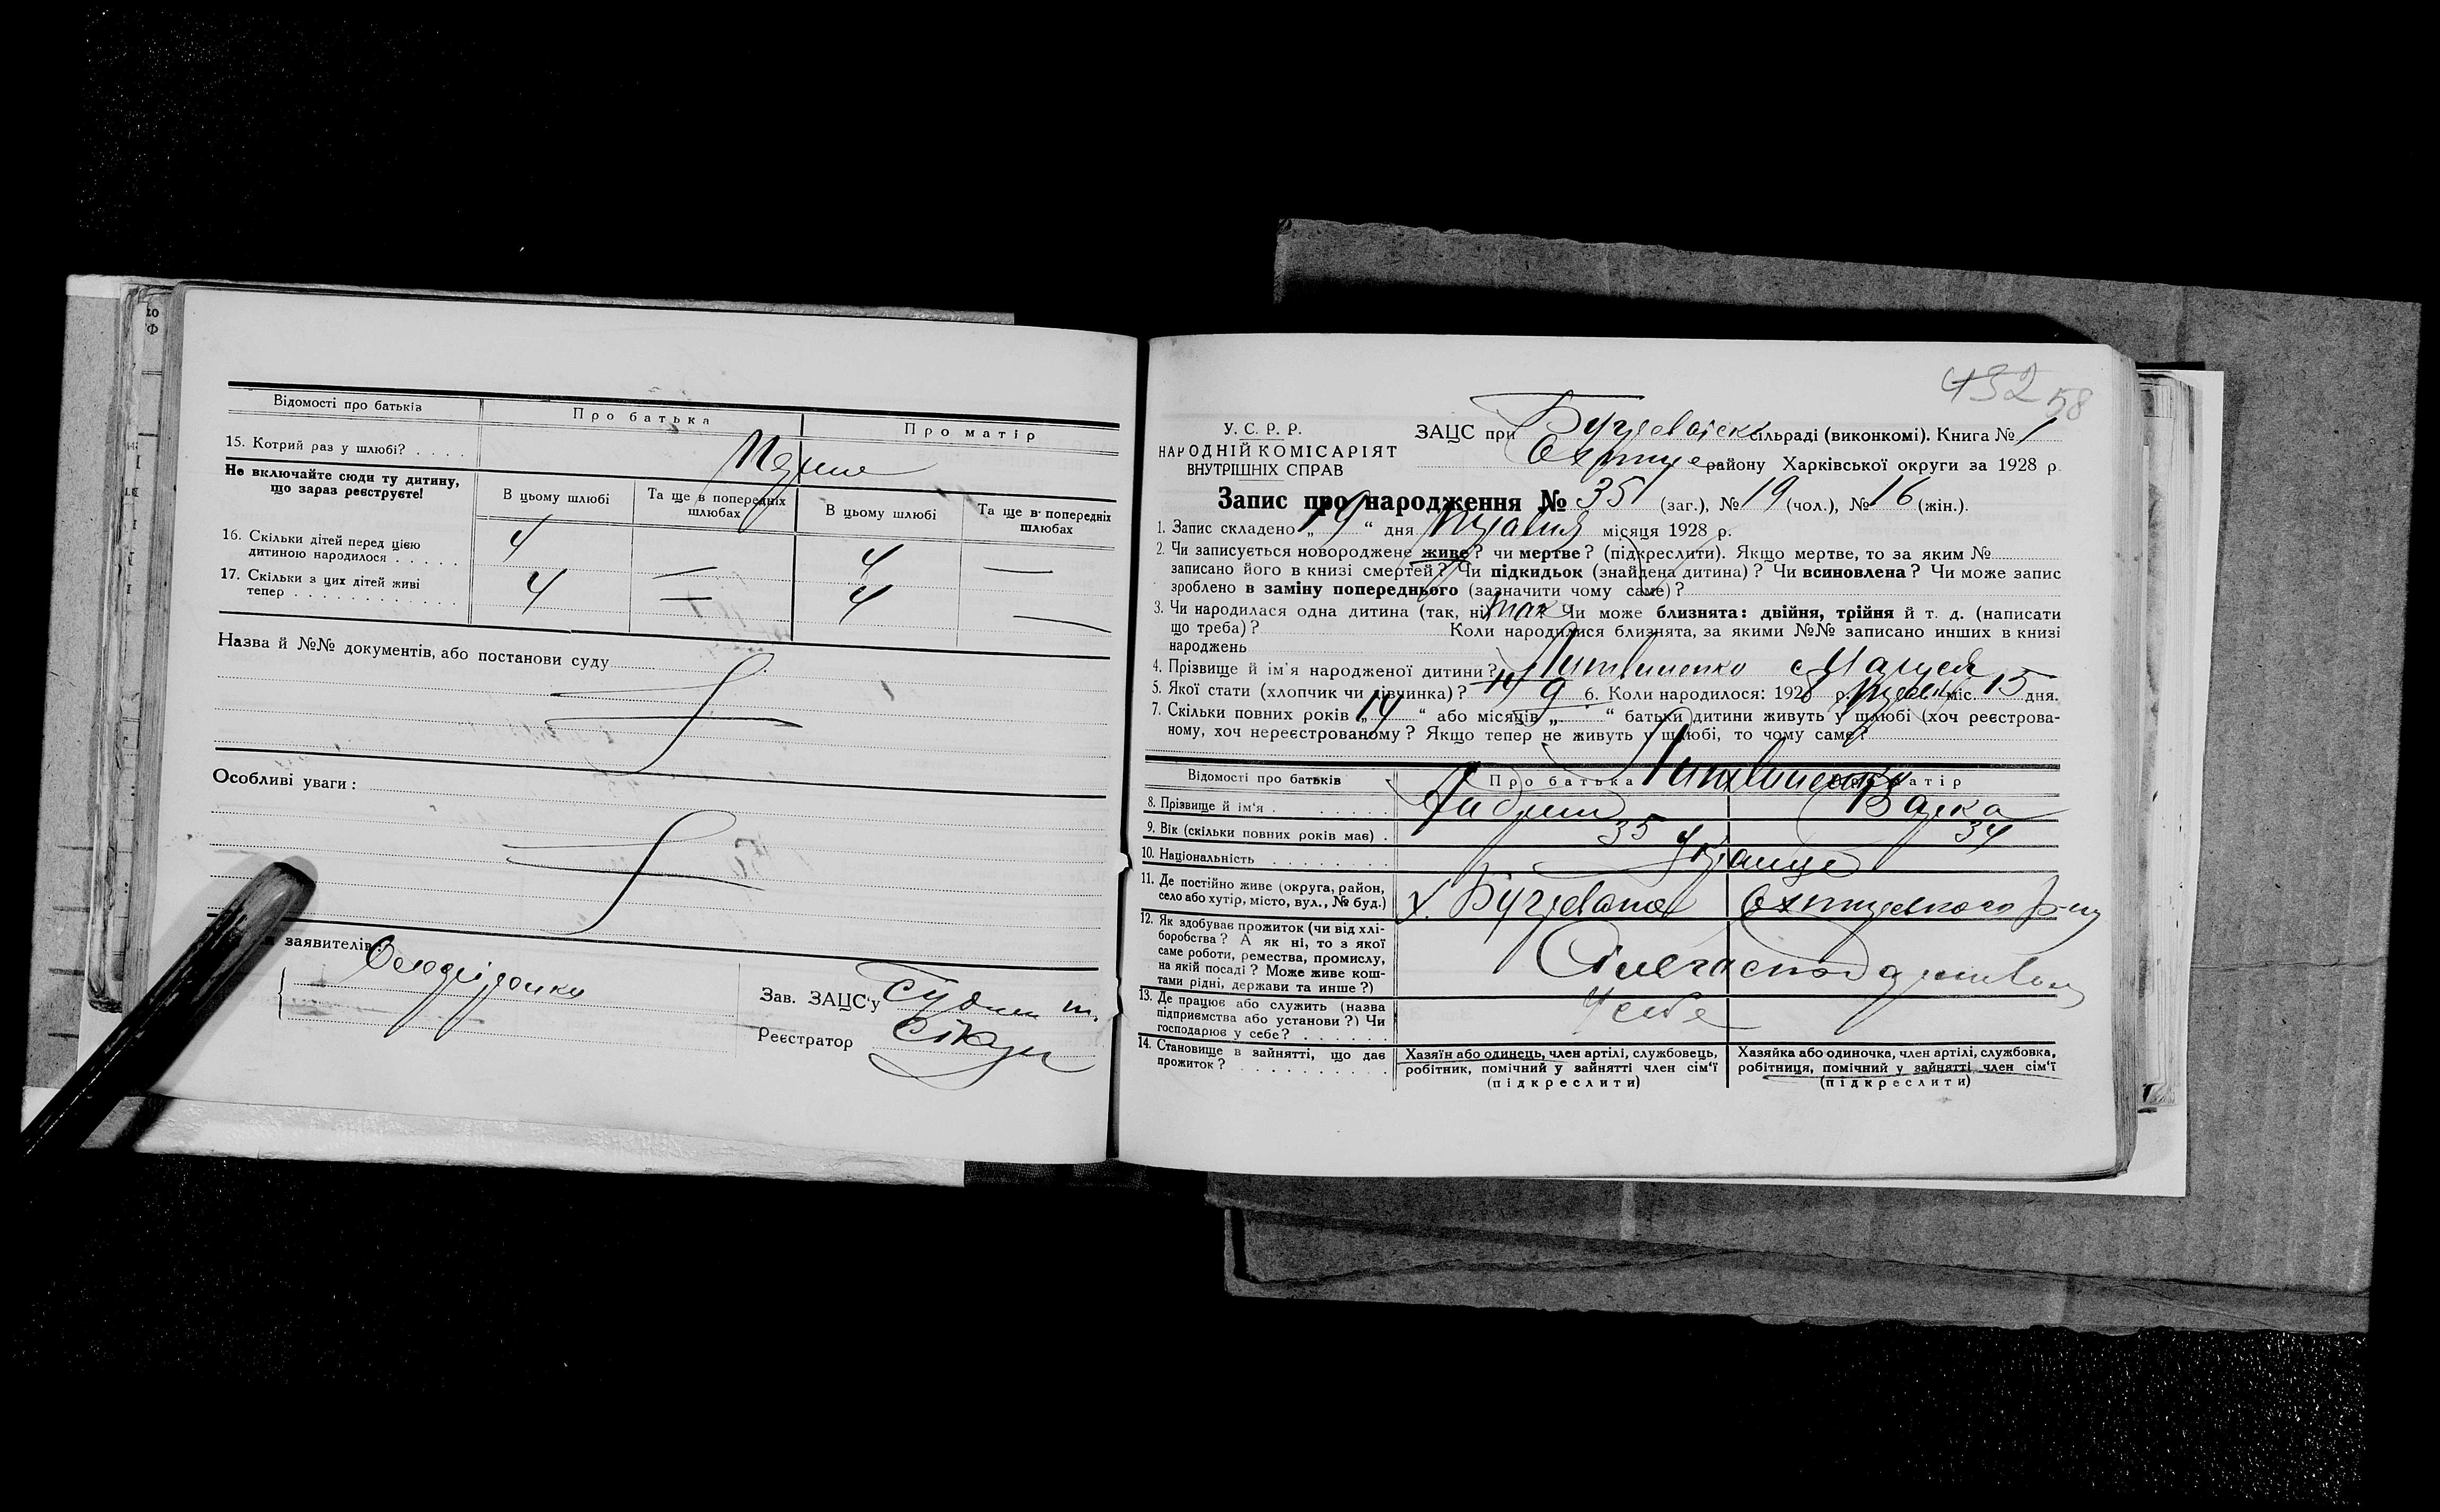 Відомості про батьків
Про батька
Про матір
15. Котрий раз у шлюбі? . . . .
Не включайте сюди ту дитину, що зараз реєструєте!
В цьому шлюбі
Та ще в попередніх шлюбах
В цьому шлюбі
Та ще в попередніх шлюбах
16. Скільки дітей перед цією дитиною народилося . . . . . 4 4 —
17. Скільки з цих дітей живі тепер . . . . . . . . . . . . 4 — 4 —
Назва й №№ документів, або постанови суду
Особливі уваги:
заявителів:
Зав. ЗАЦС'у
Реєстратор
432 58
У. С. Р. Р.
НАРОДНІЙ КОМІСАРІЯТ
ВНУТРІШНІХ СПРАВ
ЗАЦС при сільраді (виконкомі). Книга № 1
району Харківської округи за 1928 р.
Запис про народження № 35 (заг.), № 19 (чол.), № 16 (жін.).
1. Запис складено „19“ дня травня місяця 1928 р.
2. Чи записується новороджене живе? чи мертве? (підкреслити). Якщо мертве, то за яким №
записано його в книзі смертей? Чи підкидьок (знайдена дитина)? Чи всиновлена? Чи може запис
зроблено в заміну попереднього (зазначити чому саме)?
3. Чи народилася одна дитина (так, ні) так Чи може близнята: двійня, трійня й т. д. (написати
що треба)? Коли народилися близнята, за якими №№ записано инших в книзі
народжень
4. Прізвище й ім'я народженої дитини? Литвиненко Маруся
5. Якої стати (хлопчик чи дівчинка)? 6. Коли народилося: 1928 р. трав. міс. 15 дня.
7. Скільки повних років „14“ або місяців „ “ батьки дитини живуть у шлюбі (хоч реєстрова-
ному, хоч нереєстрованому? Якщо тепер не живуть у шлюбі, то чому саме?
Відомості про батьків
Про батька
матір
Литвиненко
8. Прізвище й ім'я . . . . . .
9. Вік (скільки повних років має) . 35 34
10. Національність . . . . . . . Українці
11. Де постійно живе (округа, район, село або хутір, місто, вул., № буд.)
12. Як здобуває прожиток (чи від хлі-
боробства? А як ні, то з якої
саме роботи, ремества, промислу,
на якій посаді? Може живе кош-
тами рідні, держави та инше?)
13. Де працює або служить (назва
підприємства або установи?) Чи
господарює у себе? . . . . . . У себе
14. Становище в зайнятті, що дає прожиток? . . . . . . . . .
Хазяїн або одинець, член артілі, службовець,
робітник, помічний у зайнятті член сім'ї
(підкреслити)
Хазяйка або одиночка, член артілі, службовка,
робітниця, помічний у зайнятті член сім'ї
(підкреслити)